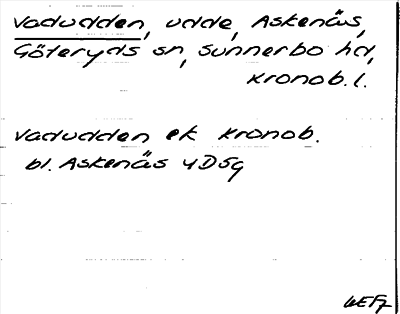 Vadudden, udde, Askenäs,
Göteryds sn, Sunnerbo hd,
Kronob. l.
Vadudden ek Kronob.
bl. Askenäs 4D5g